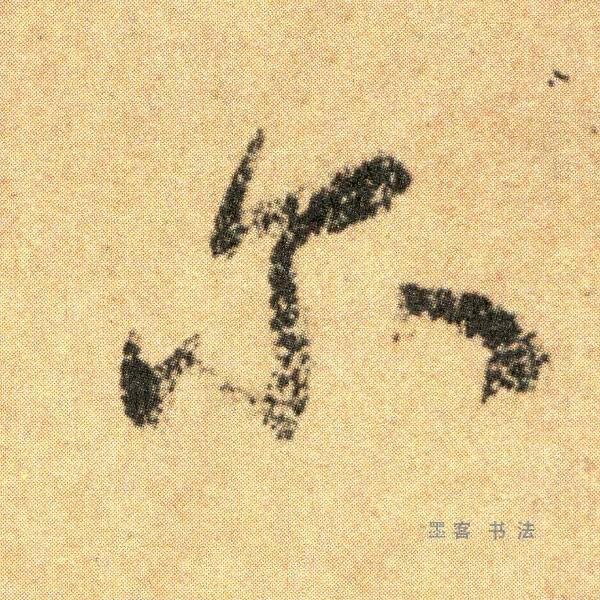 尔
墨客 书法